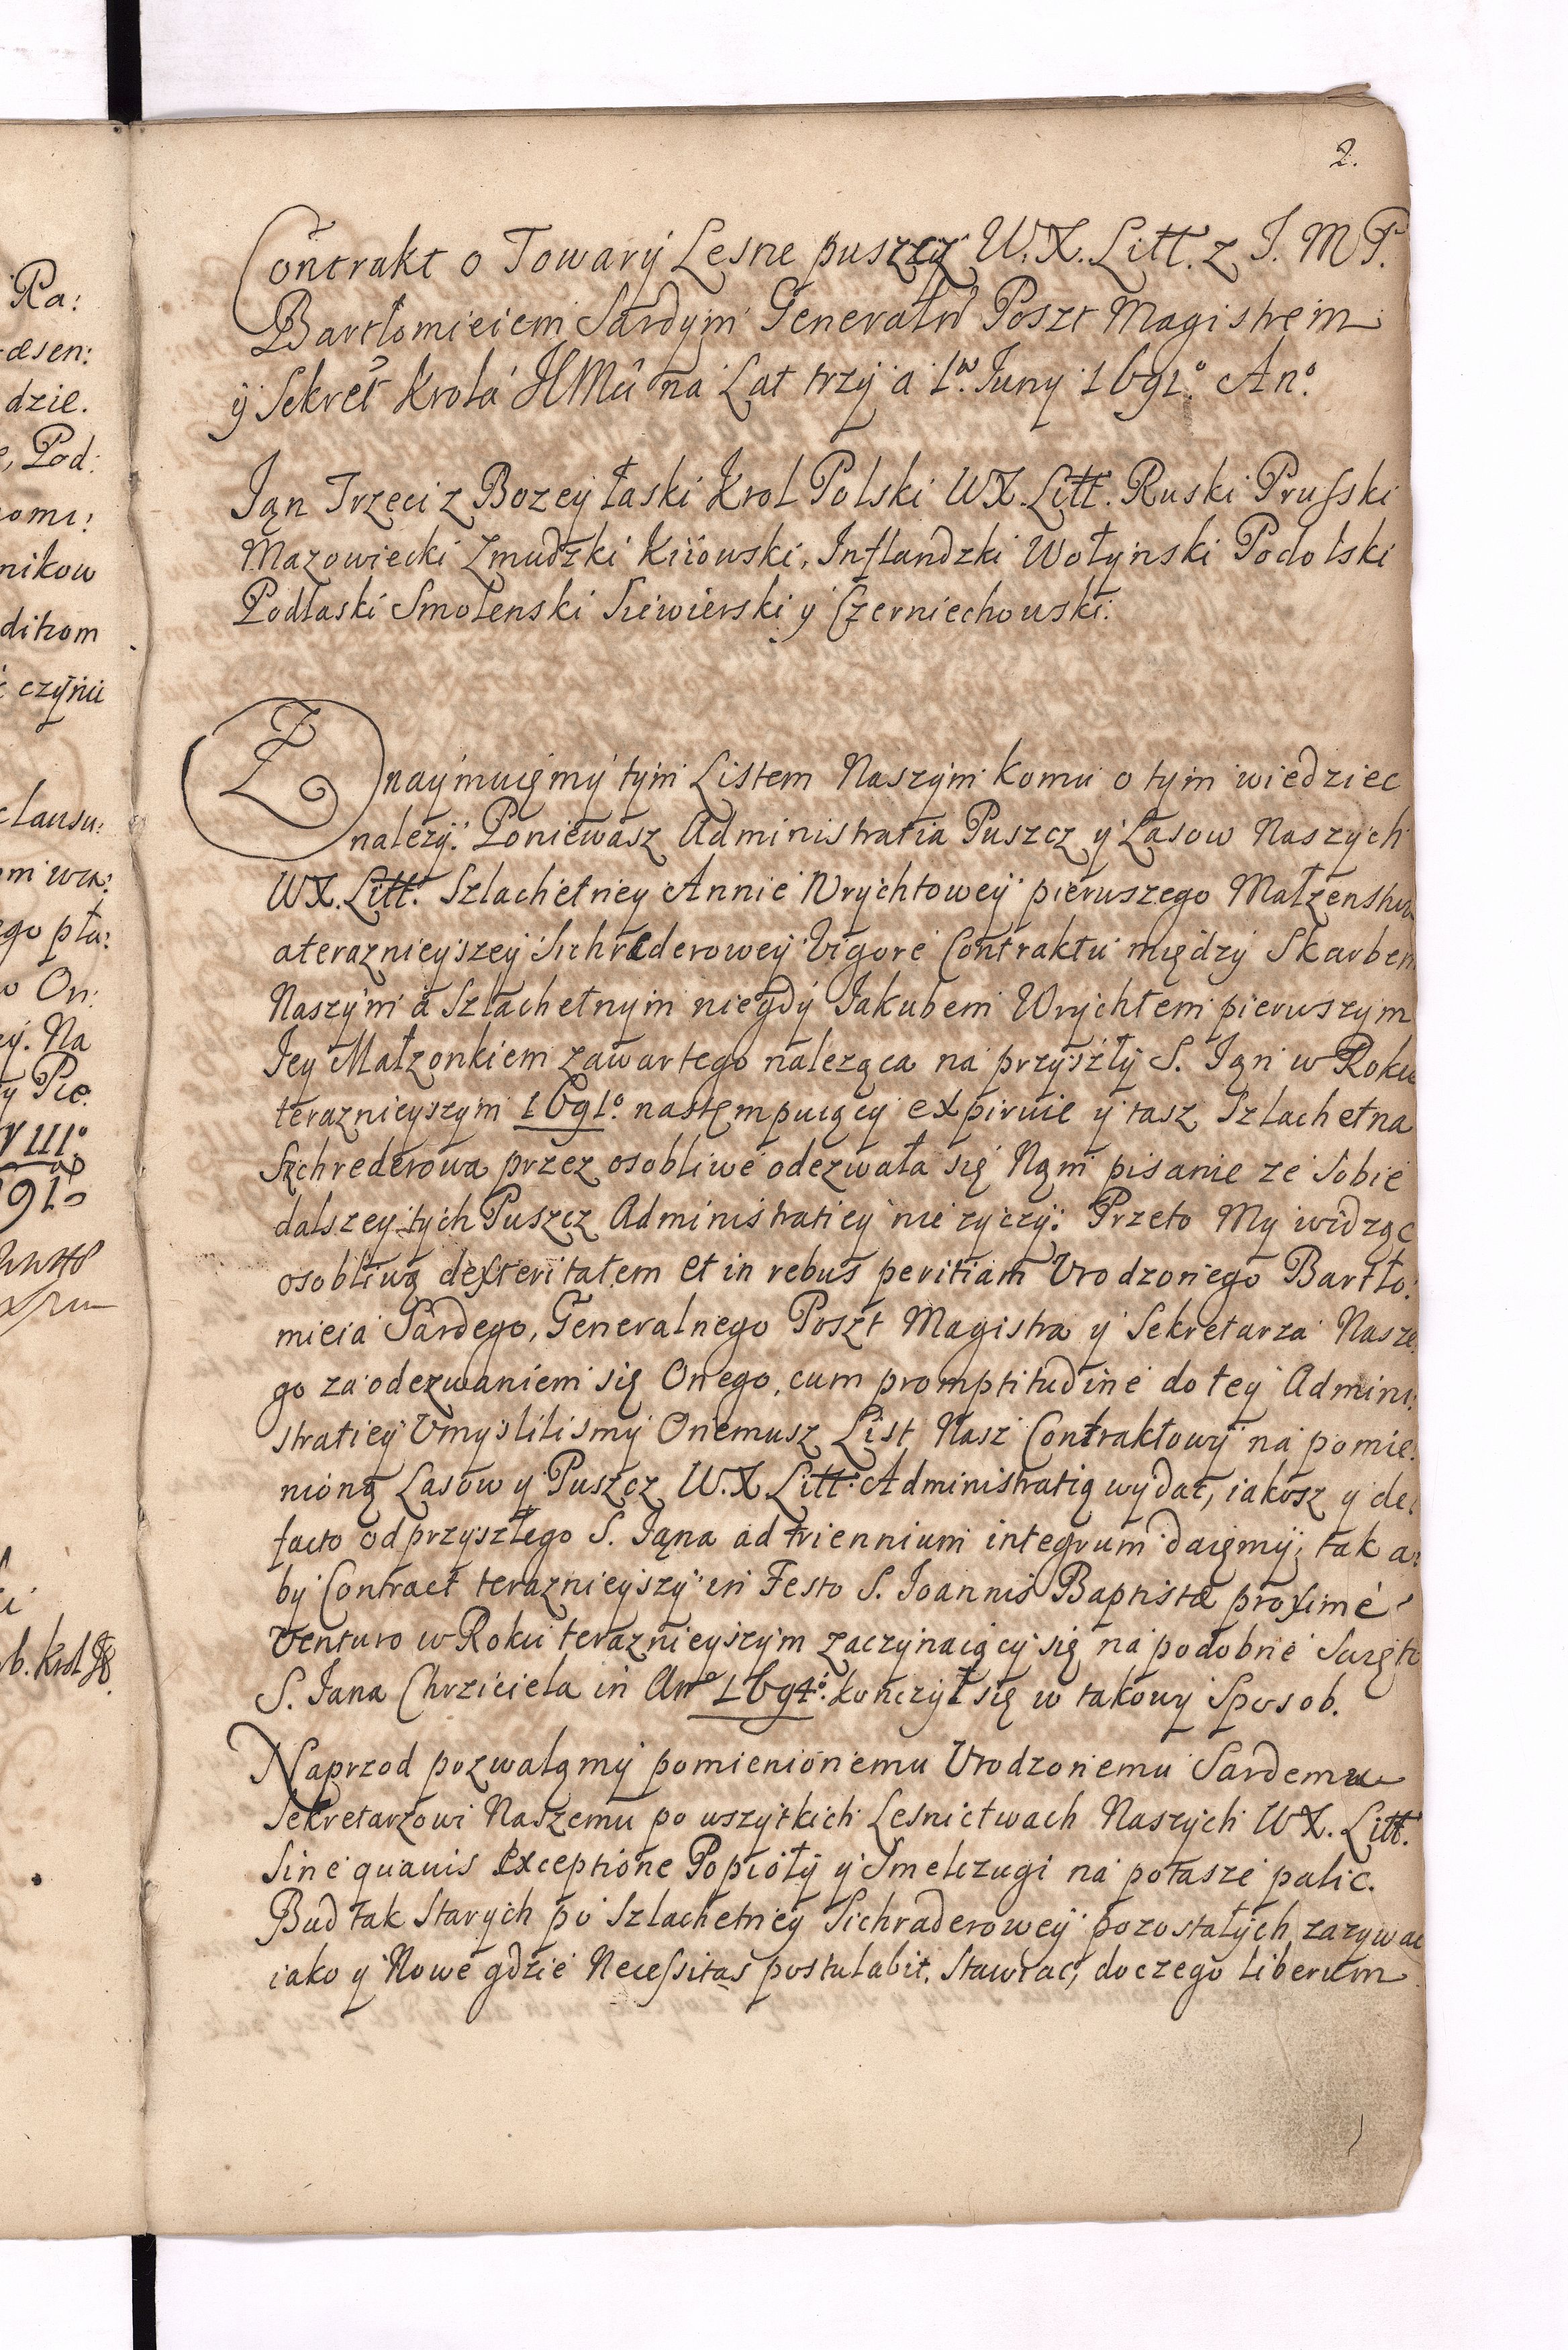 2.
Contrakt o Towary Lesne puszczy W. X. Litt. z J. M P.
Bartłomieiem Sardym Generałn Poszt Magistrem
y Sekret Krola JKMci na Lat trzy a 1ma Juny 1691o Ano
Jąn Trzeci z Bozey łaski Krol Polski WX. Litt. Ruski Pruſski
Mazowiecki Zmudzki Kiiowski, Inflandzki Wołynski Podolski
Podlaski Smolenski Siewierski y Czerniechowski.
Znaymuięmy tym Listem Naszym komu o tym wiedziec
nalezy. Poniewasz Administratia Puszcz y Lasow Naszych
WX. Litt. Szlachetney Annie Wrychtowey pierwszego Małzenstwa
a teraznieyszey Sichrederowey Vigore Contraktu między Skarbem
Naszym a Szlachetnym niegdy Jakubem Wrychtem pierwszym
Jey Małzonkiem zawartego naleząca na przyszły S. Jąn w Roku
teraznieyszym 1691o nastęmpuiący expiruie y tasz Szlachetna
Szchrederowa przez osobliwe odezwała się Nąm pisanie ze Sobie
dalszey tych Puszcz Administratiey nie zyczy. Przeto My widząc
osobliwą dexteritatem et in rebus peritiam Urodzonego Bartło:
mieia Sardego, Generalnego Poszt Magistra y Sekretarza Nasze:
go za odezwaniem się Onego, cum promptitudine do tey Admini:
stratiey Umyslilismy Onemusz List Nasz Contraktowy na pomie:
nioną Lasow y Puszcz W. X Litt. Administratią wydac, iakosz y de
facto od przyszłego S. Jąna ad triennium integrum daięmy, tak a:
by Contract teraznieyszy in Festo S. Joannis Baptistæ proxime
Venturo w Roku teraznieyszym zaczynaiący się na podobne Swięto
S. Jana Chrziciela in Ano 1694o konczył się w takowy Sposob.
Naprzod pozwaląmy pomienionemu Urodzonemu Sardemu
Sekretarzowi Naszemu po wszytkich Lesnictwach Naszych WX. Litt.
Sine quavis exceptione Popioły y Smelczugi na potasze palic.
Bud tak Starych po Szlachetney Sichraderowey pozostałych zazywac
iako y Nowe gdzie Neceſsitas postulabit, Stawiac, do czego liberum